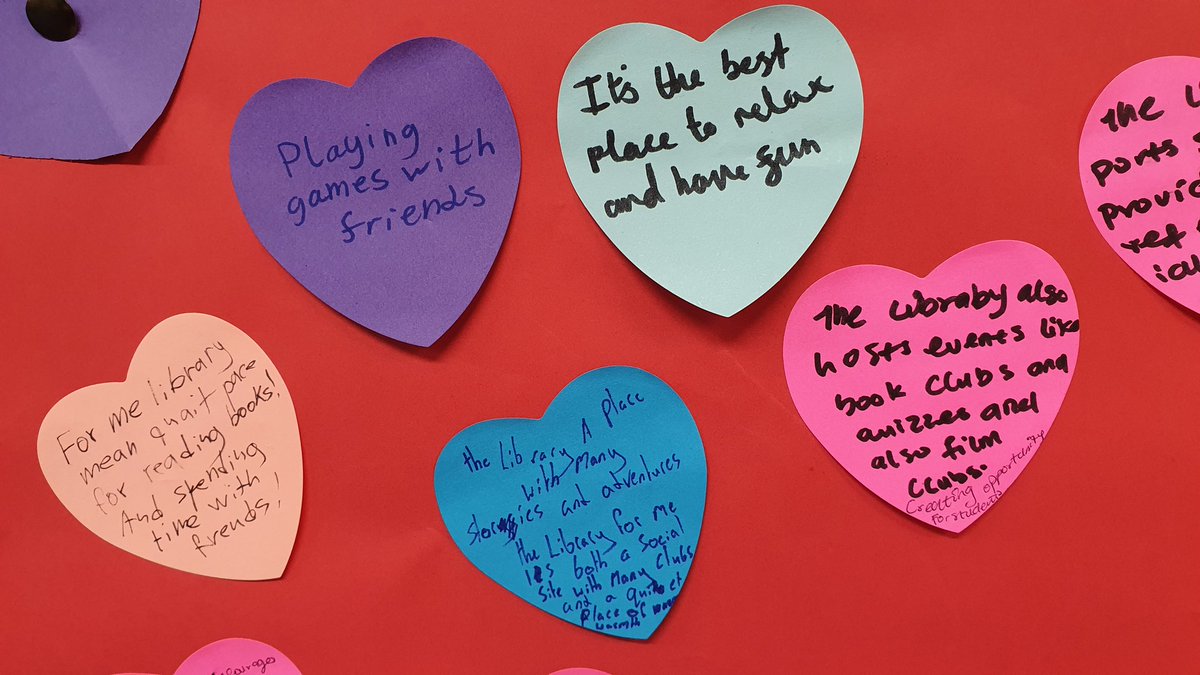 Playing
games with
friends
It's the best
place to relax
and have fun
the
ports
provid
ret
The libraby also
hosts events like
book clubs and
quizzes and
also film
clubs.
Creatting opportunity
for students
For me library
mean quait pace
for reading books!
And spending
time with
freends!
the Library A place
with many
stories and adventures
the Library for me
is both a social
site with many clubs
and a quiet
place of
warmth
courages